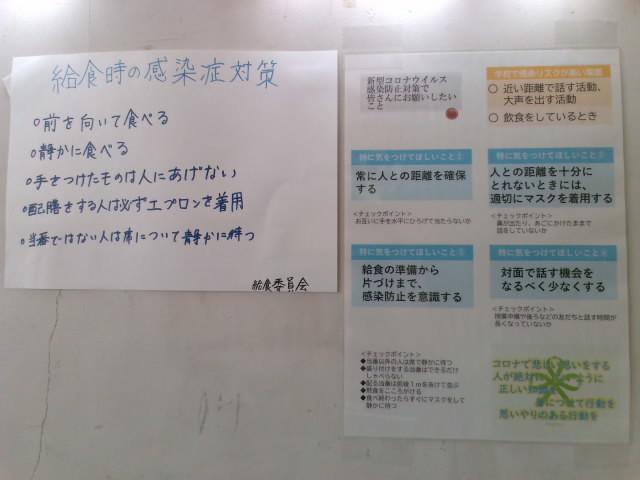 給食時の感染症対策
○前を向いて食べる
○静かに食べる
○手をつけたものは人にあげない
○配膳をする人は必ずエプロンを着用
○当番ではない人は席について静かに待つ
給食委員会
新型コロナウイルス
感染防止対策で
皆さんにお願いしたい
こと
学校で感染リスクが高い場面
○ 近い距離で話す活動、
大声を出す活動
○ 飲食をしているとき
特に気をつけてほしいこと①
常に人との距離を確保
する
＜チェックポイント＞
お互いに手を水平にひろげて当たらないか
特に気をつけてほしいこと②
人との距離を十分に
とれないときには、
適切にマスクを着用する
＜チェックポイント＞
鼻が出たり、あごにかけたままで
話をしていないか
特に気をつけてほしいこと③
給食の準備から
片づけまで、
感染防止を意識する
＜チェックポイント＞
◆当番以外の人は席で静かに待つ
◆盛り付けをする当番はできるだけ
しゃべらない
◆配る当番は間隔１ｍをあけて並ぶ
◆黙食をこころがける
◆食べ終わったらすぐにマスクをして
静かに待つ
特に気をつけてほしいこと④
対面で話す機会を
なるべく少なくする
＜チェックポイント＞
授業中横や後ろなどの友だちと話す時間が
長くなっていないか
コロナで悲しい思いをする
人が絶対に ように
正しい知識
身につけて行動を
思いやりのある行動を